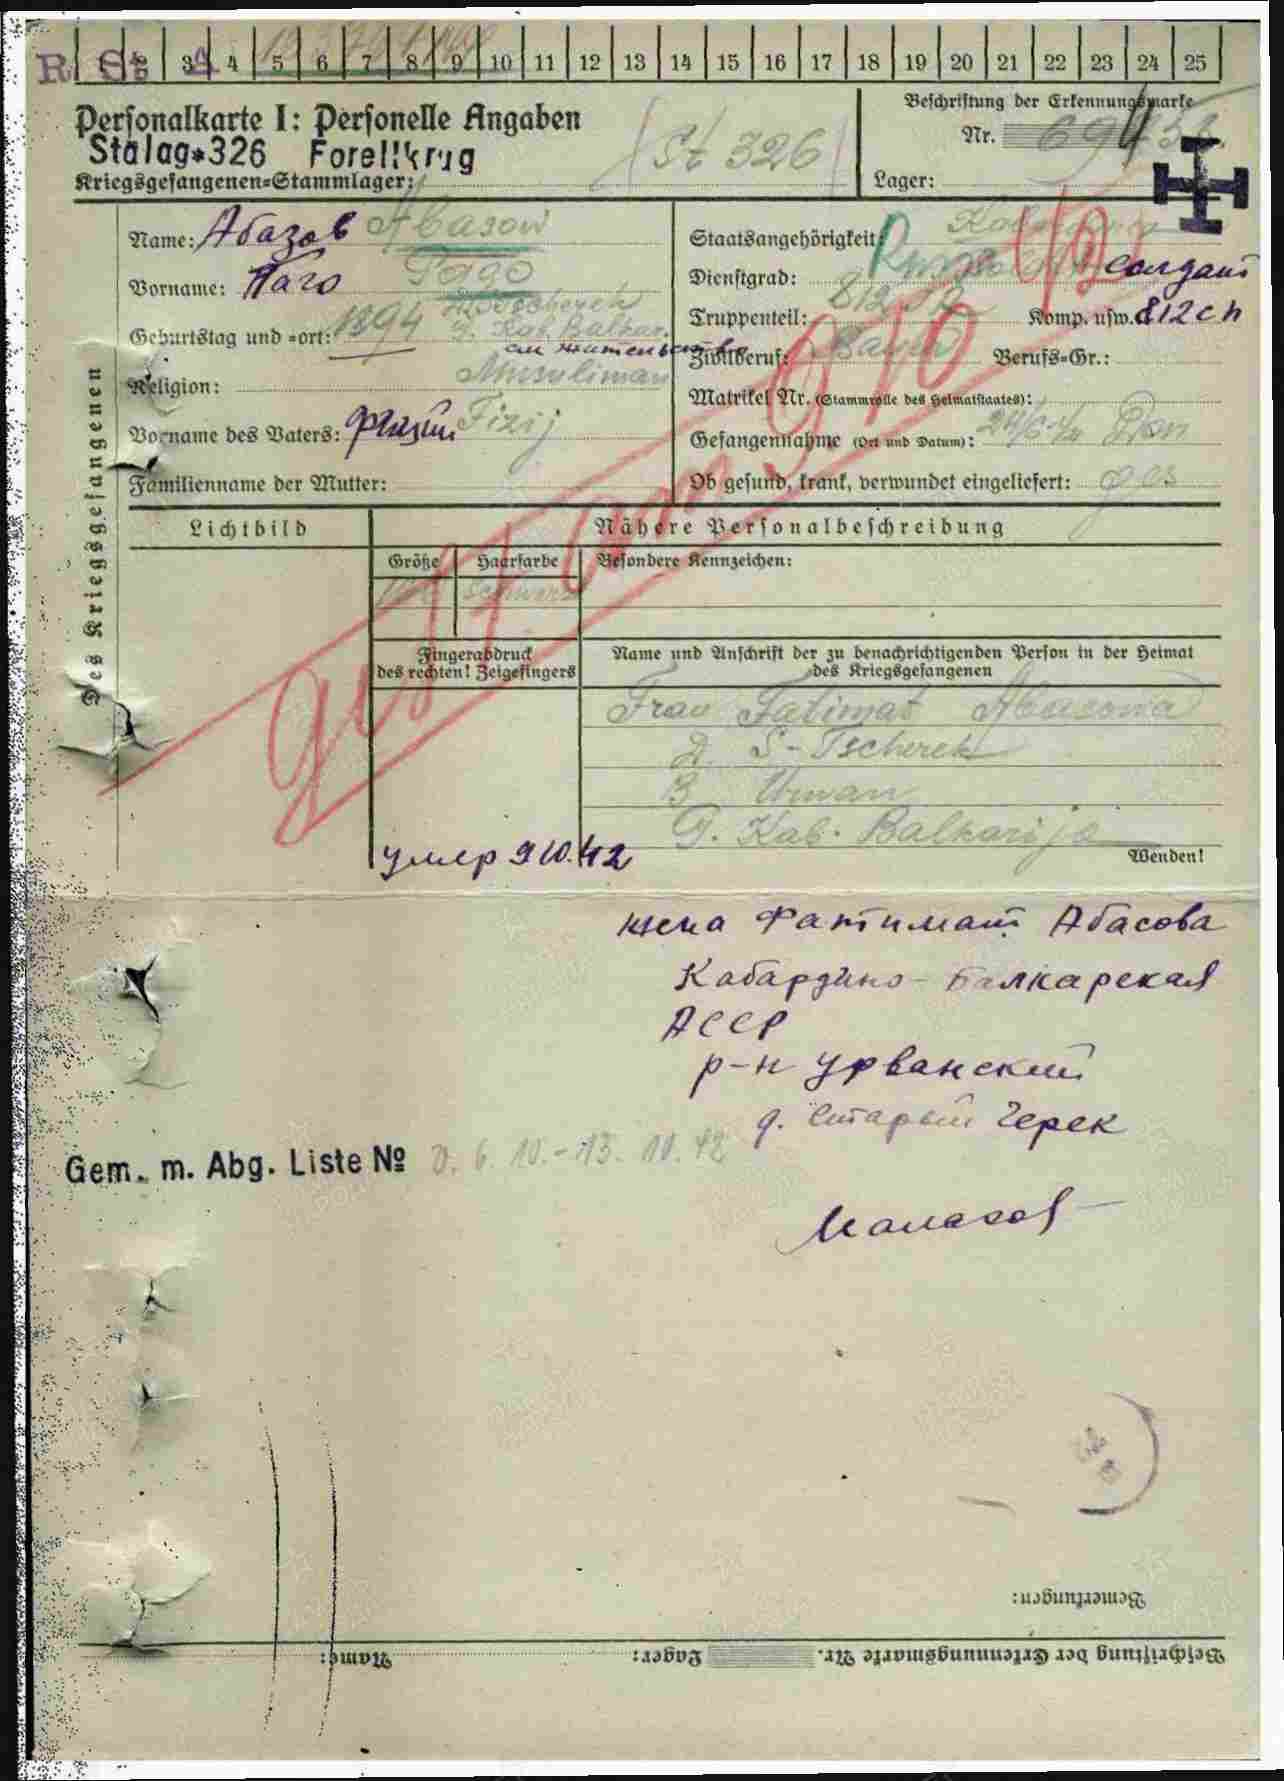 R 3 4 5 6 7 8 9 10 11 12 13 14 15 16 17 18 19 20 21 22 23 24 25
Personalkarte I: Personelle Angaben
Stalag 326 Forellkrug
Kriegsgefangenen=Stammlager:
St 326
Beschriftung der Erkennungsmarke
Nr.
Lager:
Des Kriegsgefangenen
Name: Абазов Abasow
Vorname: Паго Pago
Geburtstag und =ort: 1894
Kab. Balkar.
Religion: Musuliman
Vorname des Vaters: Физий Fizij
Familienname der Mutter:
Staatsangehörigkeit:
Dienstgrad: солдат
Truppenteil: 812 Komp. usw. 812 сп
Zivilberuf: Bauer Berufs=Gr.:
Matrikel Nr. (Stammrolle des Heimatstaates):
Gefangennahme (Ort und Datum): Don
Ob gesund, krank, verwundet eingeliefert: ges
gest. am 9.10.42
Lichtbild
Nähere Personalbeschreibung
Größe Haarfarbe Besondere Kennzeichen:
schwarz
Fingerabdruck
des rechten! Zeigefingers
Name und Anschrift der zu benachrichtigenden Person in der Heimat
des Kriegsgefangenen
Frau Fatimat Abasowa
D. S-Tscherek
Urwan
G. Kab. Balkarija
Wenden!
умер 9 10.42
жена Фатимат Абасова
Кабардино-Балкарская
АССР
р-н Урванский
д. Старый Черек
Gem. m. Abg. Liste № v. 6. 10.-13. 10. 42
Малахов
Bemerkungen:
Beschriftung der Erkennungsmarke Nr. Lager: Name: